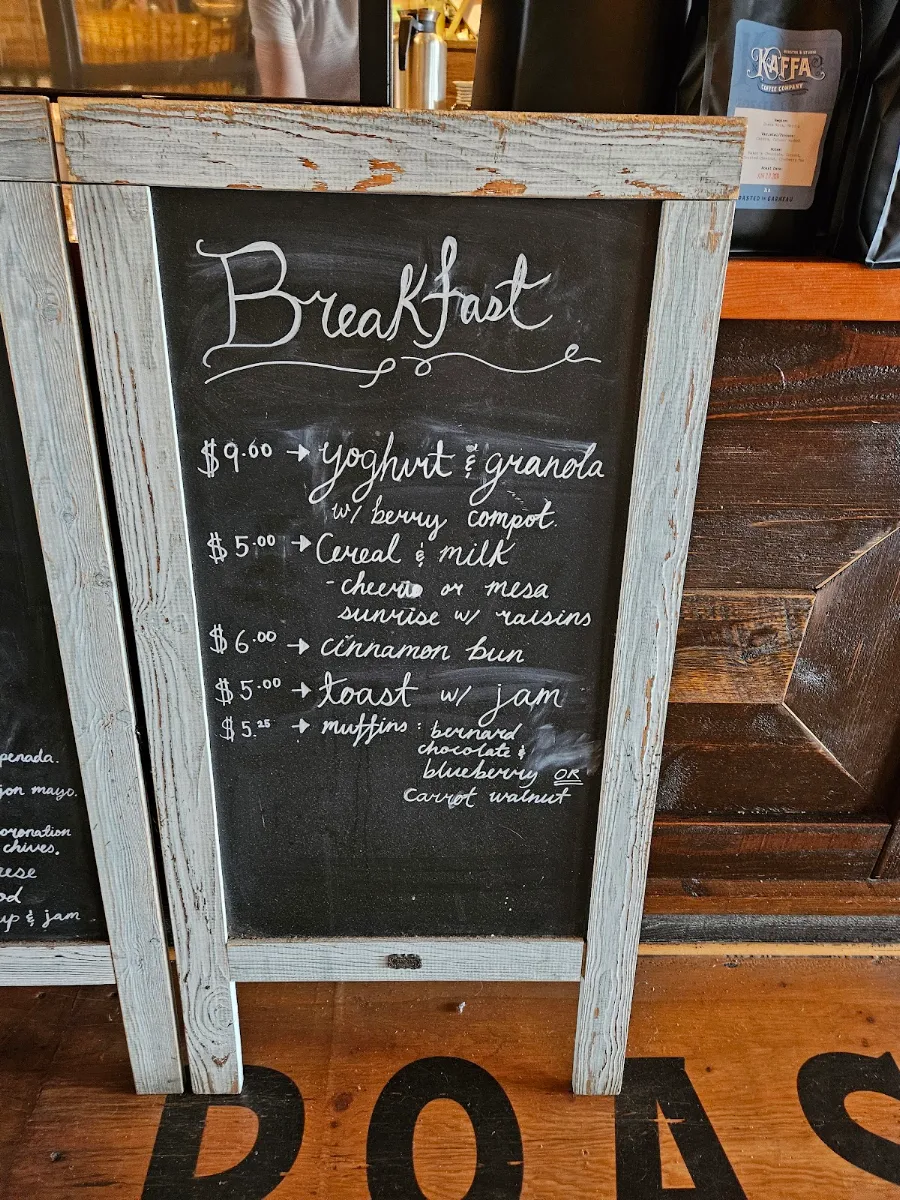 Breakfast
$9.00 → yoghurt & granola
w/ berry compot.
$5.00 → Cereal & milk
- cheerio or mesa
sunrise w/ raisins
$6.00 → cinnamon bun
$5.00 → toast w/ jam
$5.25 → muffins: bernard
chocolate &
blueberry OR
carrot walnut
penada.
jon mayo.
oronation
chives.
eese
od
up & jam
KAFFA
COFFEE COMPANY
ROAS